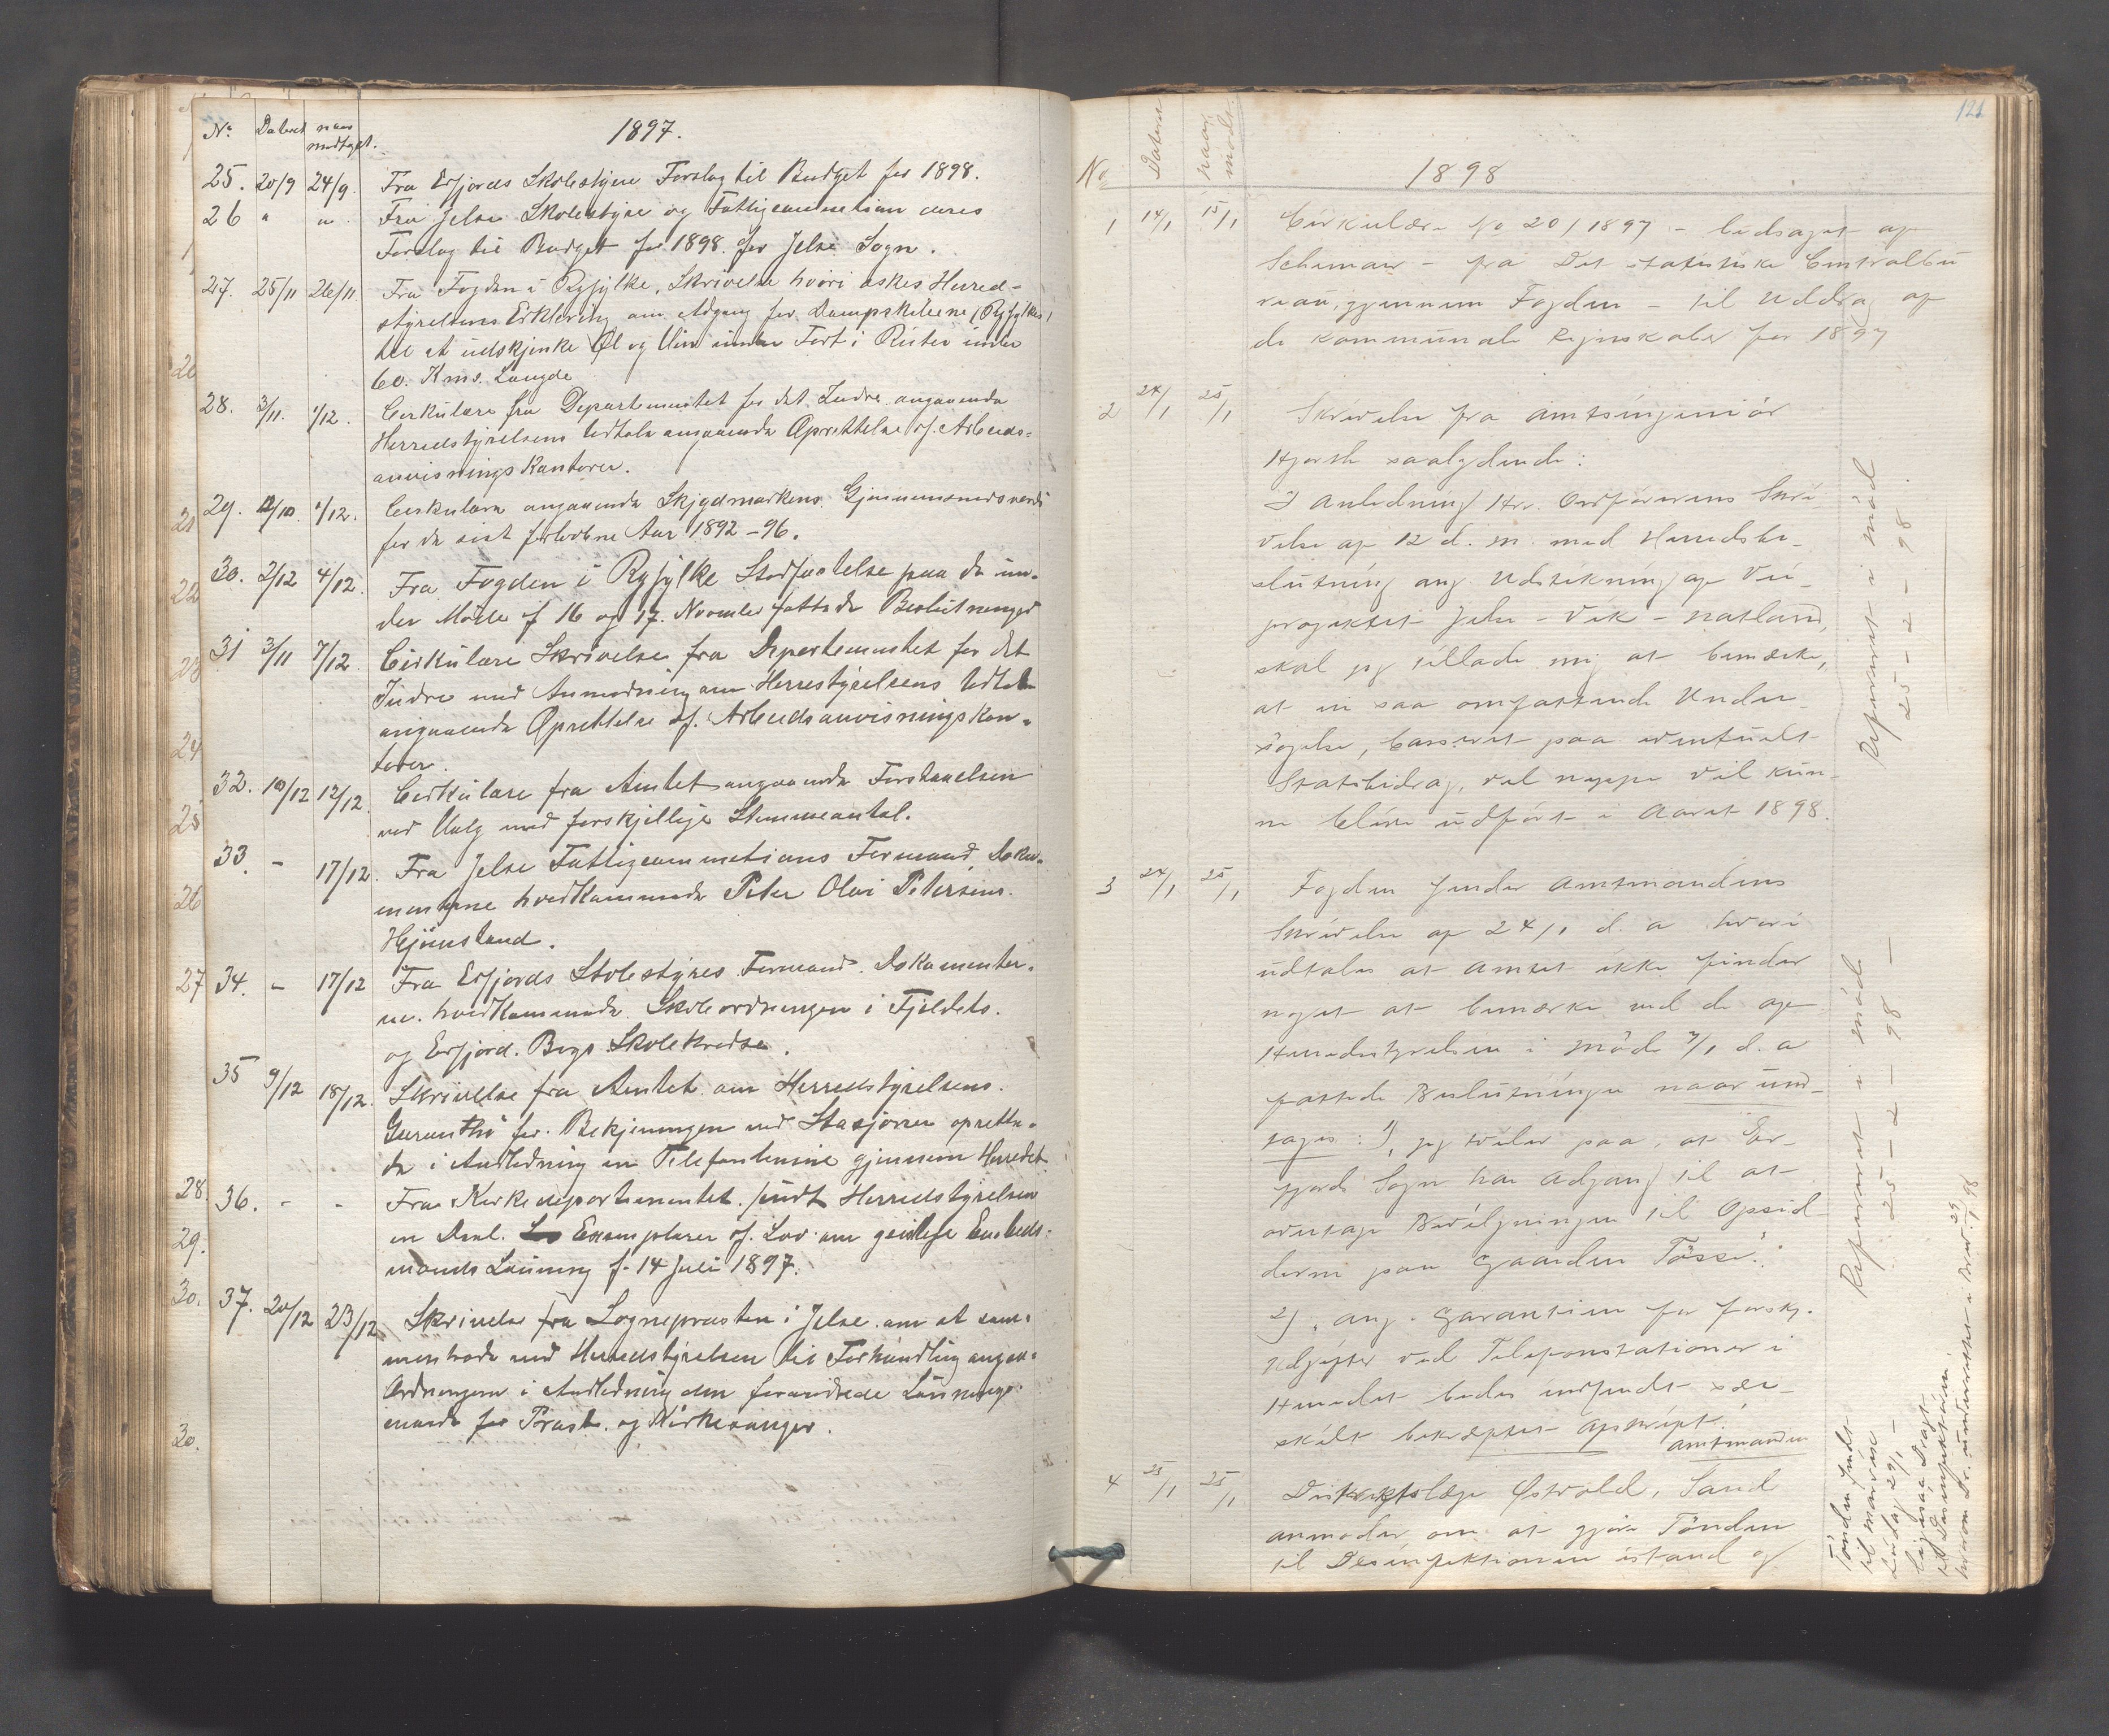 1897.
No. Dateret naar modtaget.
25. 20/9 24/9. Fra Erfjords Skolestyre Forslag til Budget for 1898.
26 " " Fra Jelse Skolestyre og Fattigcommission deres
Forslag til Budget for 1898 for Jelse Sogn.
27. 25/11 26/11 Fra Fogden i Ryfylke, Skrivelse hvori æskes Herred-
styrelsens Erklæring om Adgang for Dampskibene (Ryfylke)
til at udskjenke Øl og Vin under Fart i Ruter under
60. Kms. Længde
28. 3/11. 1/12. Cirkulære fra Departementet for det Indre angaaende
Herredstyrelsens Udtale angaaende Oprettelse af Arbeids-
anvisningskontorer.
29. 12/10 1/12. Cirkulære angaaende Skjydmarkens Gjennemsnedsverdi
for de sist forløbne Aar 1892-96.
30. 2/12 4/12. Fra Fogden i Ryfylke Stadfæstelse paa de un-
der Møde af 16 og 17. November fattede Beslutninger
31 3/11 7/12. Cirkulære Skrivelse fra Departementet for det
Indre med Anmodning om Herrestyrelsens Udtale
angaaende Oprettelse af Arbeidsanvisningskon-
torer.
32. 10/12 12/12. Cirkulære fra Amtet angaaende Forstaaelsen
ved Valg med forskjellige Stemmeantal.
33. - 17/12. Fra Jelse Fattigcommissions Formand Doku-
menterne hvedkommende Peter Olai Petersens.
Hjømsland.
34. - 17/12 Fra Erfjords Skolestyres Formand. Dokumenter-
ne. hvedkommende Skoleordningen i Fjeldets.
og Erfjord. Bygs Skolekredse.
35 9/12 18/12. Skrivelse fra Amtet om Herredstyrelsens.
Garanthi for. Betjeningen ved Stasjoner oprette-
de i Anledning en Telefonlinie gjennem Herredet
36. - - Fra Kirkedepartementet sendt Herredstyrelsen
en Deel. Exemplarer af Lov om geistlige Embeds-
mænds Lønning af 14 Juli 1897.
37. 20/12 23/12 Skrivelse fra Sognepræsten i Jelse om at sam-
mentræde med Herredstyrelsen til Forhandling angaa-
Ordningen i Anledning den forandrede Lønnings-
maade for Præst. og Kirkesanger.
20
21
22
23
24
25
26
27
28
29.
30.
30.
121
1898
No Dateret naar modt.
1 14/1 15/1 Cirkulære No 20/1897 - ledsaget af
Schemaer - fra Det statistiske Centralbü
reau, gjennem Fogden - til Uddrag af
de kommunale Regnskaber for 1897
2 24/1 25/1 Skrivelse fra Amtsingeniør
Hjorth saalydende:
I Anledning Hr. Ordførerens Skri-
velse af 12 d. m. med Herredsbe-
slutning ang. Udstikning af Vei-
projektet Jelse - Vik - Natland,
skal jeg tillade mig at bemærke,
at en saa omfattende Under-
søgelse, basseret paa eventuelt
Statsbidrag, vel neppe vil kun-
ne blive udført i Aaret 1898.
3 24/1 25/1 Fogden sender Amtmandens
Skrivelse af 24/1 d. a hvori
udtales at Amtet ikke finder
noget at bemærke ved de af
Herredsstyrelsen i Møde 7/1 d. a
fattede Beslutninger naar und-
tages: 1, jeg tviler paa, at Er-
fjords Sogn har Adgang til at
overtage Bevilgningen til Opsid-
derne paa Gaarden Tøsse".
2), ang. Garantien for forskj.
Udgifter ved Telefonstationer i
Herredet bedes indsendt sær-
skilt bekræftet Afskrift".
Amtmanden
4 25/1 25/1 Distriktslæge Østvold, Sand
anmoder om at gjøre Tønden
til Desinfektionen istand og
Refereret i Mød
25 - 2 - 98.
Refereret i Møde
25 - 2 - 98 -
Tønden sendt
til
Lørdag 29/1 -
ligesaa Dragt
til Desinfektøren,
hvorom Dr. underrettet i Brev 29/1 98